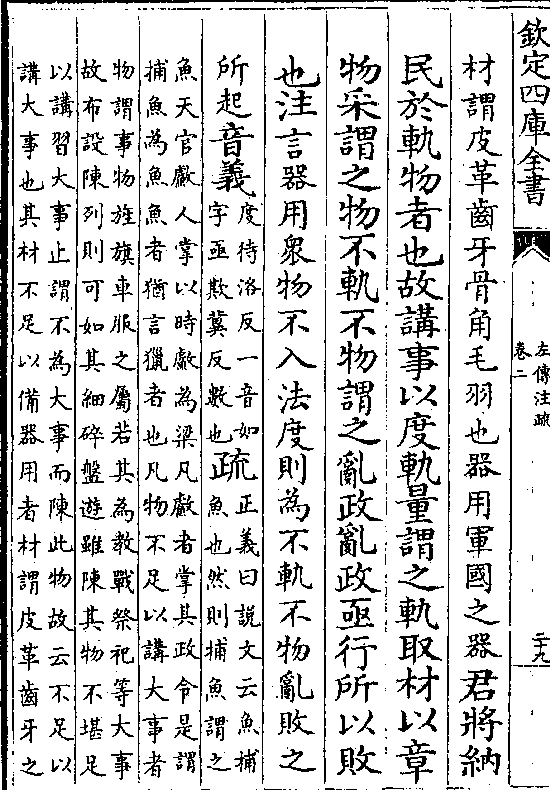 欽定四庫全書
左傳注疏
卷二
二十九
材謂皮革齒牙骨角毛羽也器用軍國之器君將納
民於軌物者也故講事以度軌量謂之軌取材以章
物采謂之物不軌不物謂之亂政亂政亟行所以敗
也注言器用衆物不入法度則為不軌不物亂敗之
所起音義度待洛反一音如字亟欺冀反數也疏正義曰説文云魚捕魚也然則捕魚謂之
魚天官䱷人掌以時䱷為梁凡䱷者掌其政令是謂
捕魚為魚魚者猶言獵者也凡物不足以講大事者
物謂事物旌旗車服之屬若其為教戰祭祀等大事
故布設陳列則可如其細碎盤遊雖陳其物不堪足
以講習大事止謂不為大事而陳此物故云不足以
講大事也其材不足以備器用者材謂皮革齒牙之